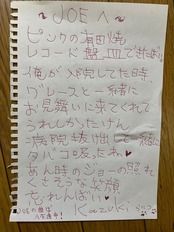 ~ JOE へ ~
ピンクの有田焼
レコード盤、皿で
俺が入院してた時、
グレースと一緒に
お見舞いに来てくれて
うれしかたけん
病院抜け出して一緒に
タバコ吸ったね♥
あん時のジョーの照れ
くさそうな笑顔
忘れんばい♥
Kazuki